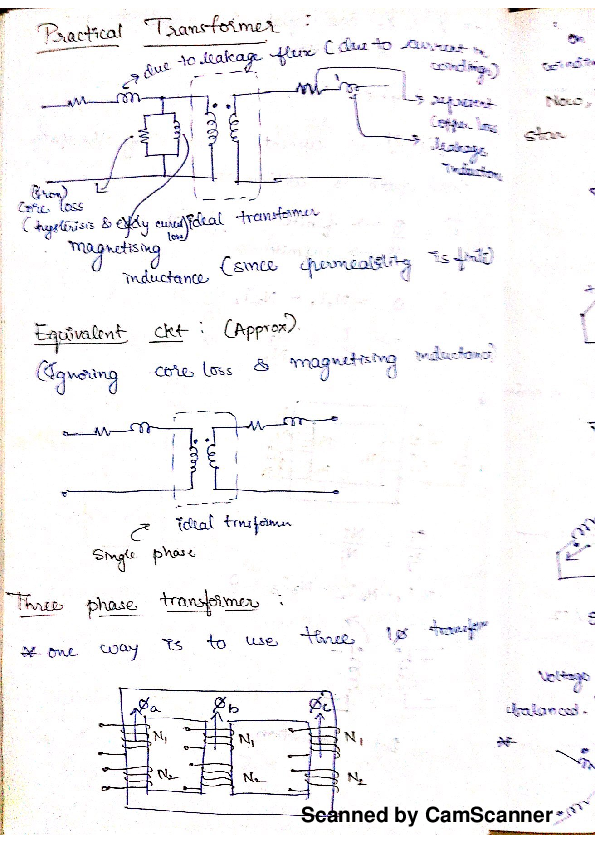 Practical Transformer :
due to leakage flux (due to current in
windings)
represent
Copper loss
leakage
(Iron)
core loss
(hysterisis & eddy
loss
ideal transformer
magnetising
inductance (since permeability is
Equivalent ckt : (Approx)
(Ignoring core loss & magnetising inductance)
ideal trnsformer
Single phase
Three phase transformer :
* one way is to use three 1ø transfor
Øa Øb Øc
N₁ N₁ N₁
N₂ N₂ N₂
on
Now,
star
Voltage
balanced.
*
Scanned by CamScanner